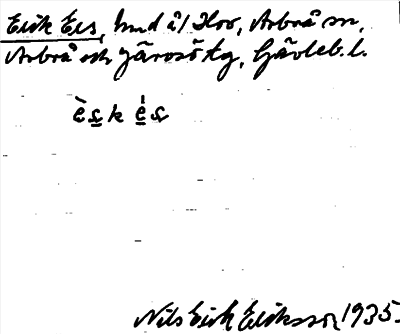 Erik Ers, hmd å/ Hov, Arbrå sn,
Arbrå och Järvsö tg, Gävleb. l.
Nils Erik Eriksson 1935.